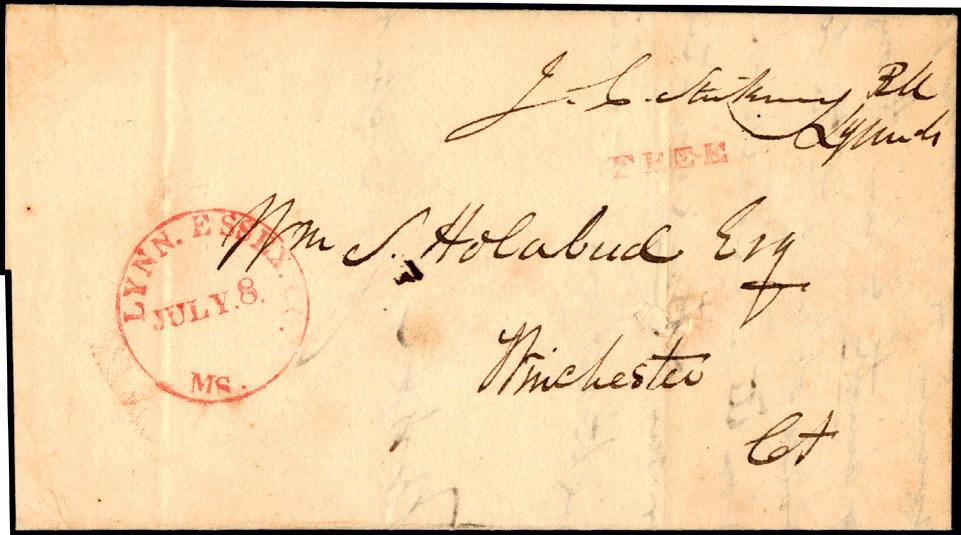 J. C. Stickney PM
Lynn Ms
FREE
LYNN. ESSEX. CO.
JULY. 8.
MS.
Wm S. Holabud Esq
Winchester
Ct